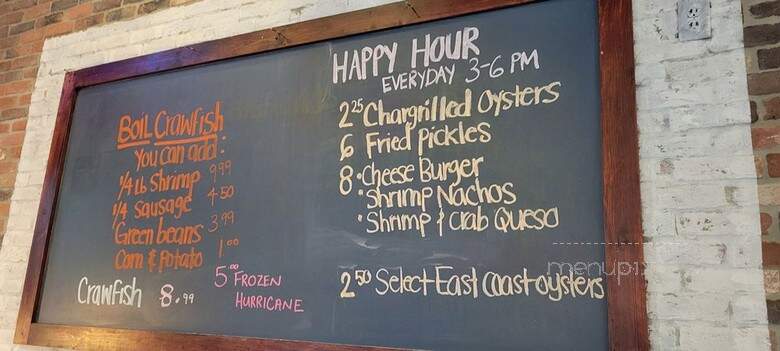 BOIL Crawfish
You can add:
1/4 Lb Shrimp 9.99
1/4 Sausage 4.50
Green beans 3.99
Corn & Potato 1.00
Crawfish 8.99
5.00 FROZEN
HURRICANE
HAPPY HOUR
EVERYDAY 3-6 PM
2.25 Chargrilled Oysters
6 Fried Pickles
8 • Cheese Burger
• Shrimp Nachos
• Shrimp & Crab Queso
2.50 Select East Coast oysters
menupix